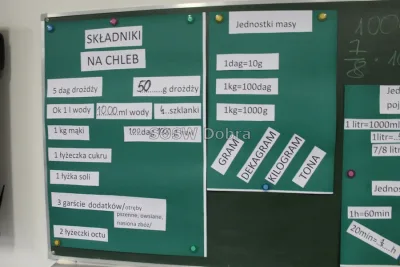 SKŁADNIKI
NA CHLEB
5 dag drożdży
50......g drożdży
Ok 1 l wody
1000 ml wody
4..szklanki
1 kg mąki
1 łyżeczka cukru
1 łyżka soli
3 garście dodatków/otręby
pszenne, owsiane,
nasiona zbóż/
2 łyżeczki octu
Jednostki masy
1dag=10g
1kg=100dag
1kg=1000g
GRAM
DEKAGRAM
KILOGRAM
TONA
SOSW Dobra
7/8
1 litr=1000ml
1litr=
7/8 litr
1h=60min
20min=